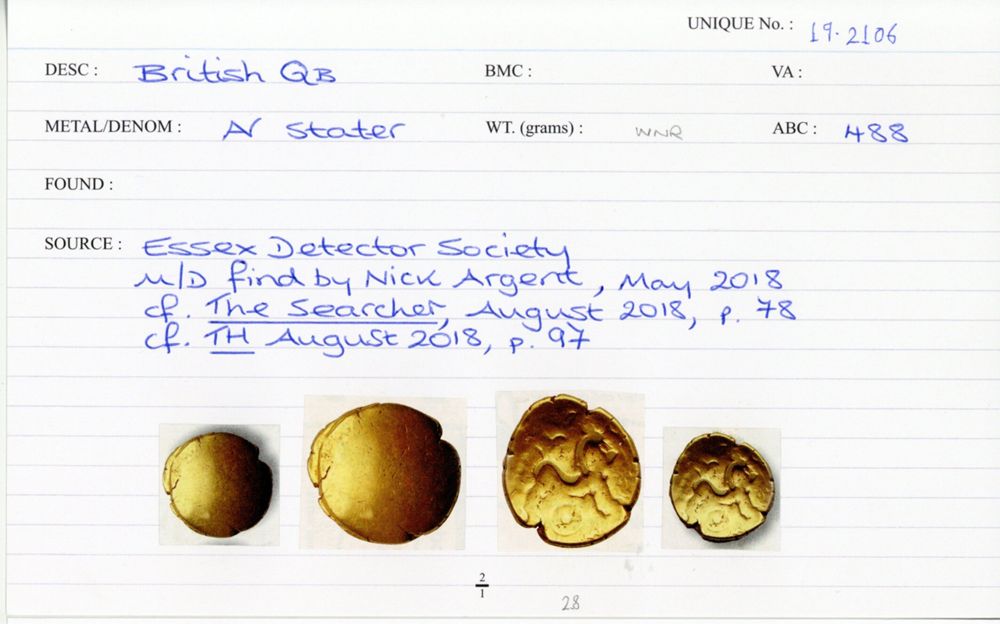 UNIQUE No. : 19.2106
DESC : British QB BMC : VA :
METAL/DENOM : AV stater WT. (grams) : WNR ABC : 488
FOUND :
SOURCE : Essex Detector Society
M/D find by Nick Argent, May 2018
cf. The Searcher, August 2018, p. 78
cf. TH August 2018, p. 97
2
1
28